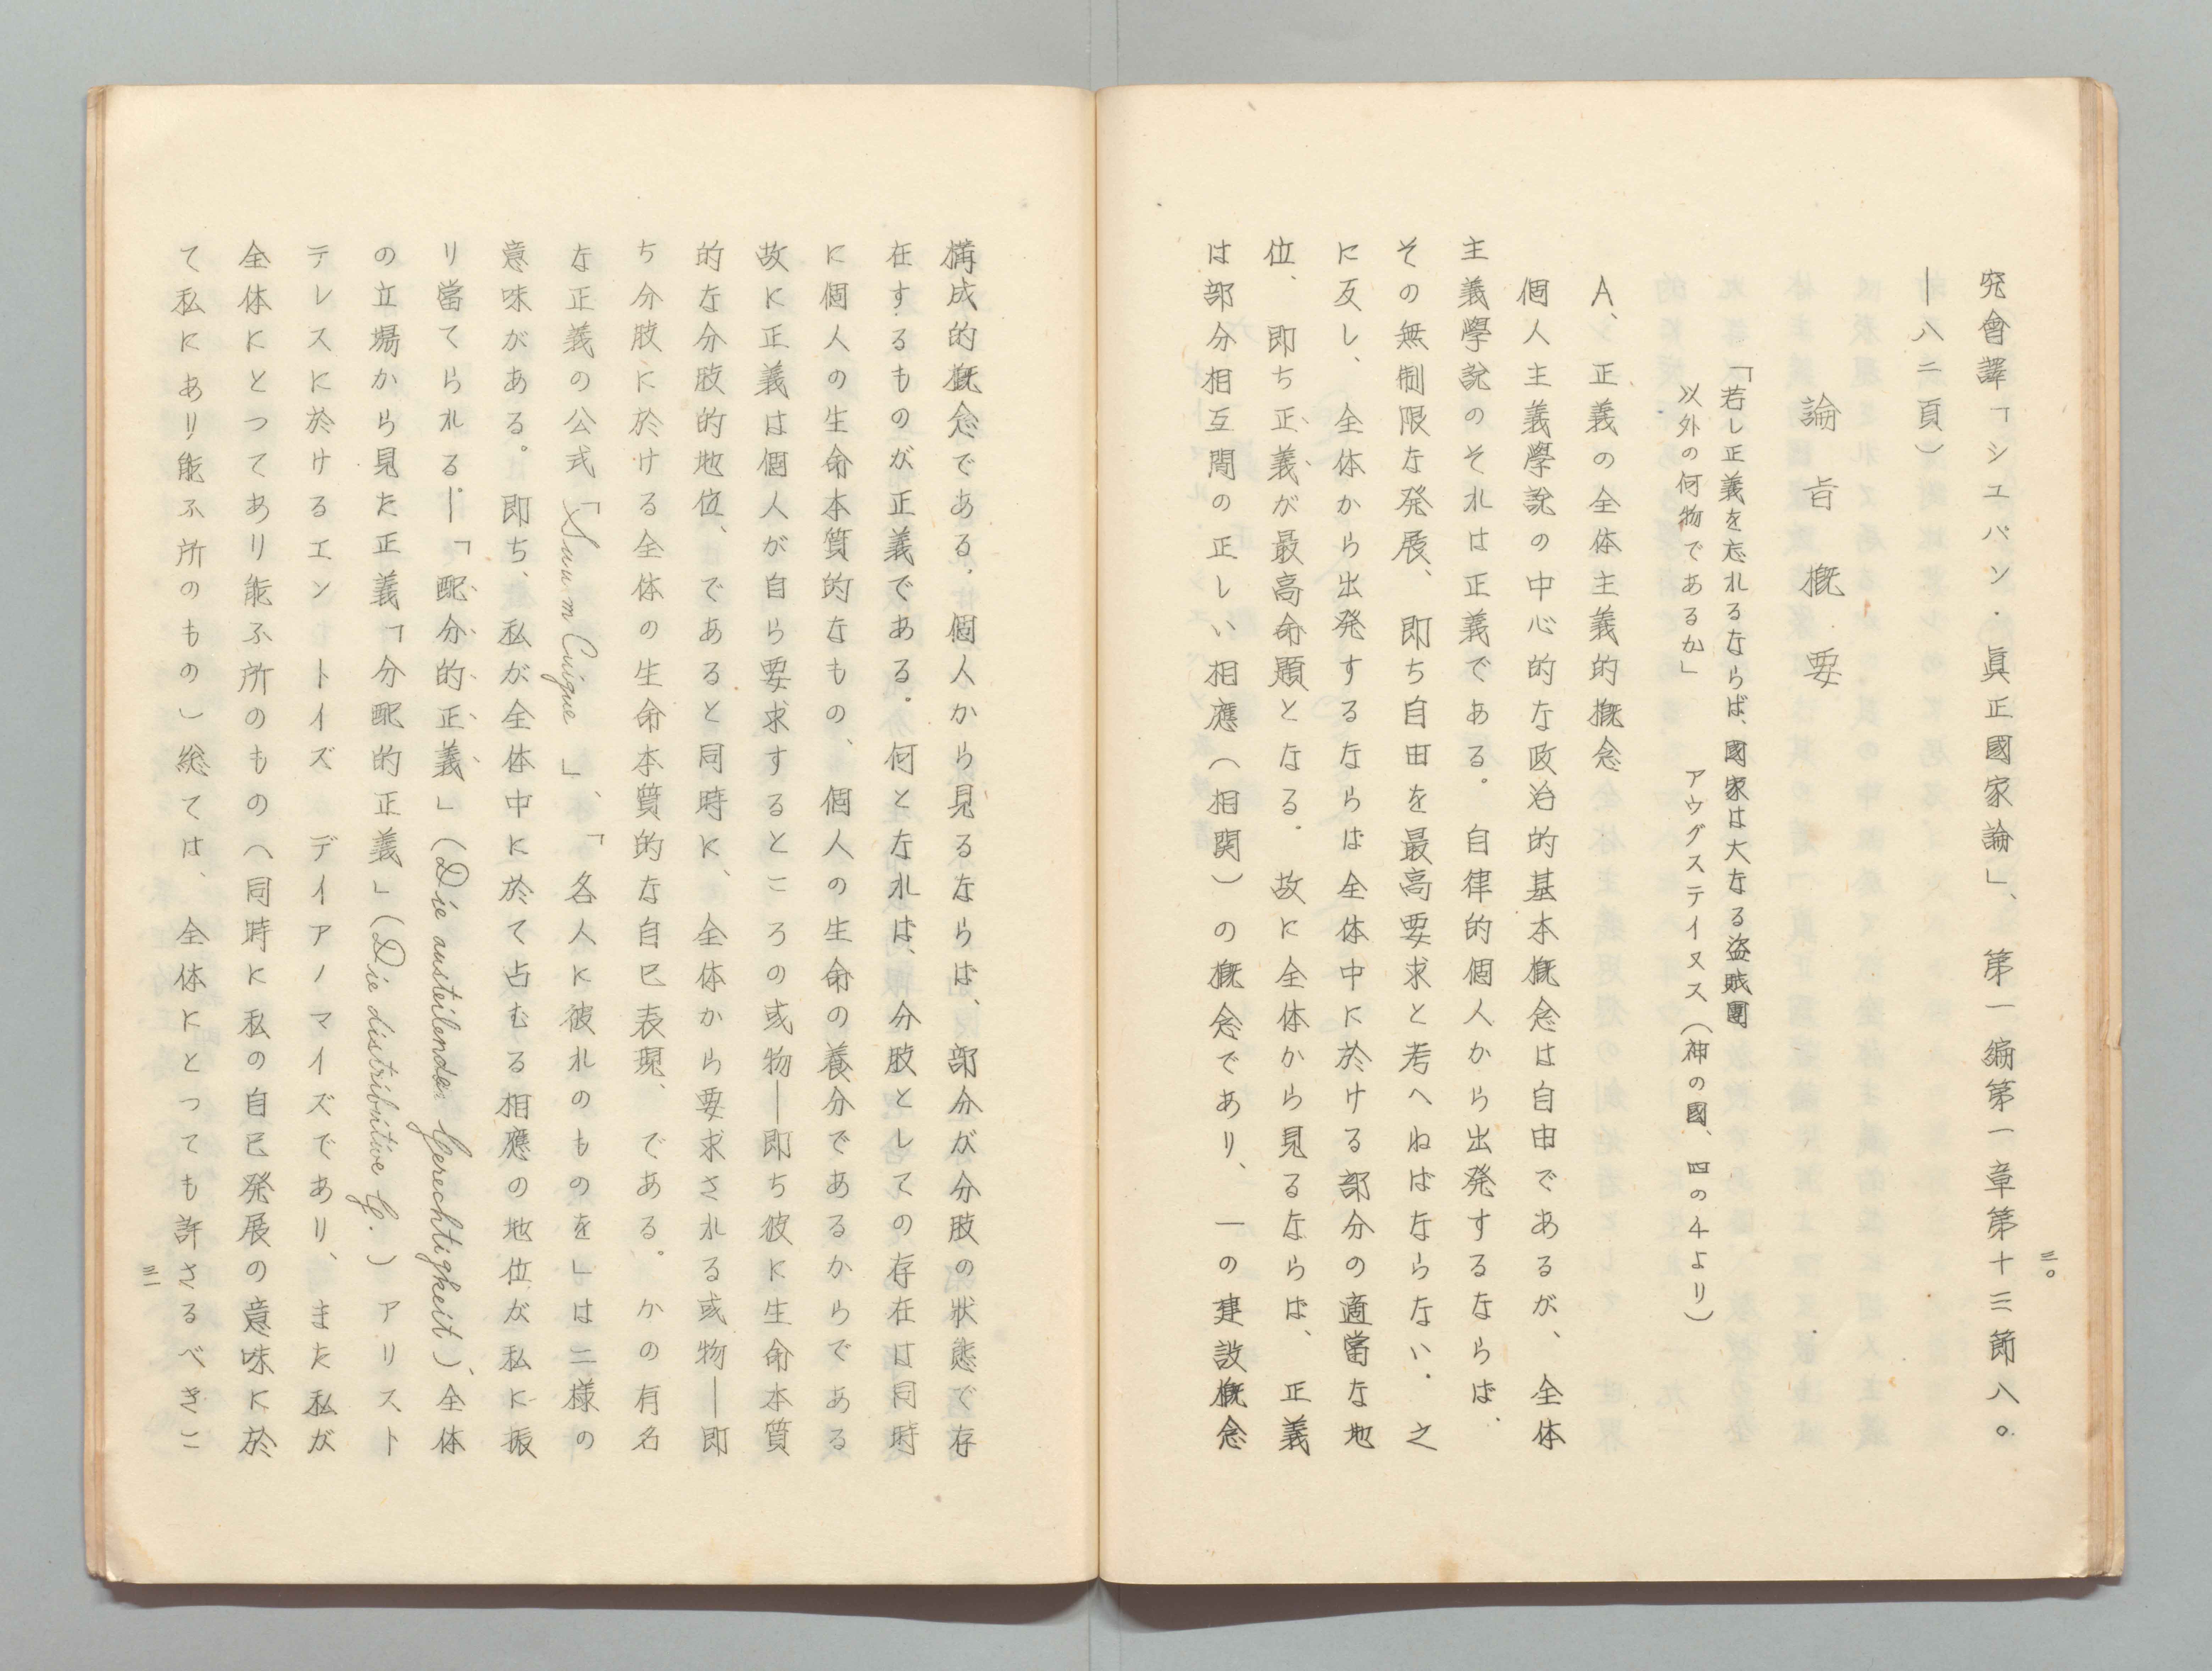 究會譯「シュパン・眞正國家論」、第一編第一章第十三節八〇
―八二頁）
論旨概要
「若し正義を忘れるならば、國家は大なる盗賊團
以外の何物であるか」　アウグステイヌス（神の國、四の4より）
A、正義の全体主義的概念
個人主義學說の中心的な政治的基本概念は自由であるが、全体
主義學說のそれは正義である。自律的個人から出発するならば、
その無制限な発展、即ち自由を最高要求と考へねばならない。之
に反し、全体から出発するならば全体中に於ける部分の適當な地
位、即ち正義が最高命題となる。故に全体から見るならば、正義
は部分相互間の正しい相應（相関）の概念であり、一の建設概念
三〇
構成的概念である。個人から見るならば、部分が分肢の狀態で存
在するものが正義である。何となれば、分肢としての存在は同時
に個人の生命本質的なもの、個人の生命の養分であるからである
故に正義は個人が自ら要求するところの或物―即ち彼に生命本質
的な分肢的地位、であると同時に、全体から要求される或物―即
ち分肢に於ける全体の生命本質的な自已表現、である。かの有名
な正義の公式「Suum Cuique」、「各人に彼れのものを」は二様の
意味がある。即ち、私が全体中に於て占むる相應の地位が私に振
り當てられる。―「配分的正義」（Die austeilenden Gerechtigkeit）、全体
の立場から見た正義「分配的正義」（Die distributive G.）アリスト
テレスに於けるエン　トイズ　デイアノマイズであり、また私が
全体にとつてあり能ふ所のもの（同時に私の自已発展の意味に於
て私にあり能ふ所のもの）総ては、全体にとつても許さるべきこ
三一